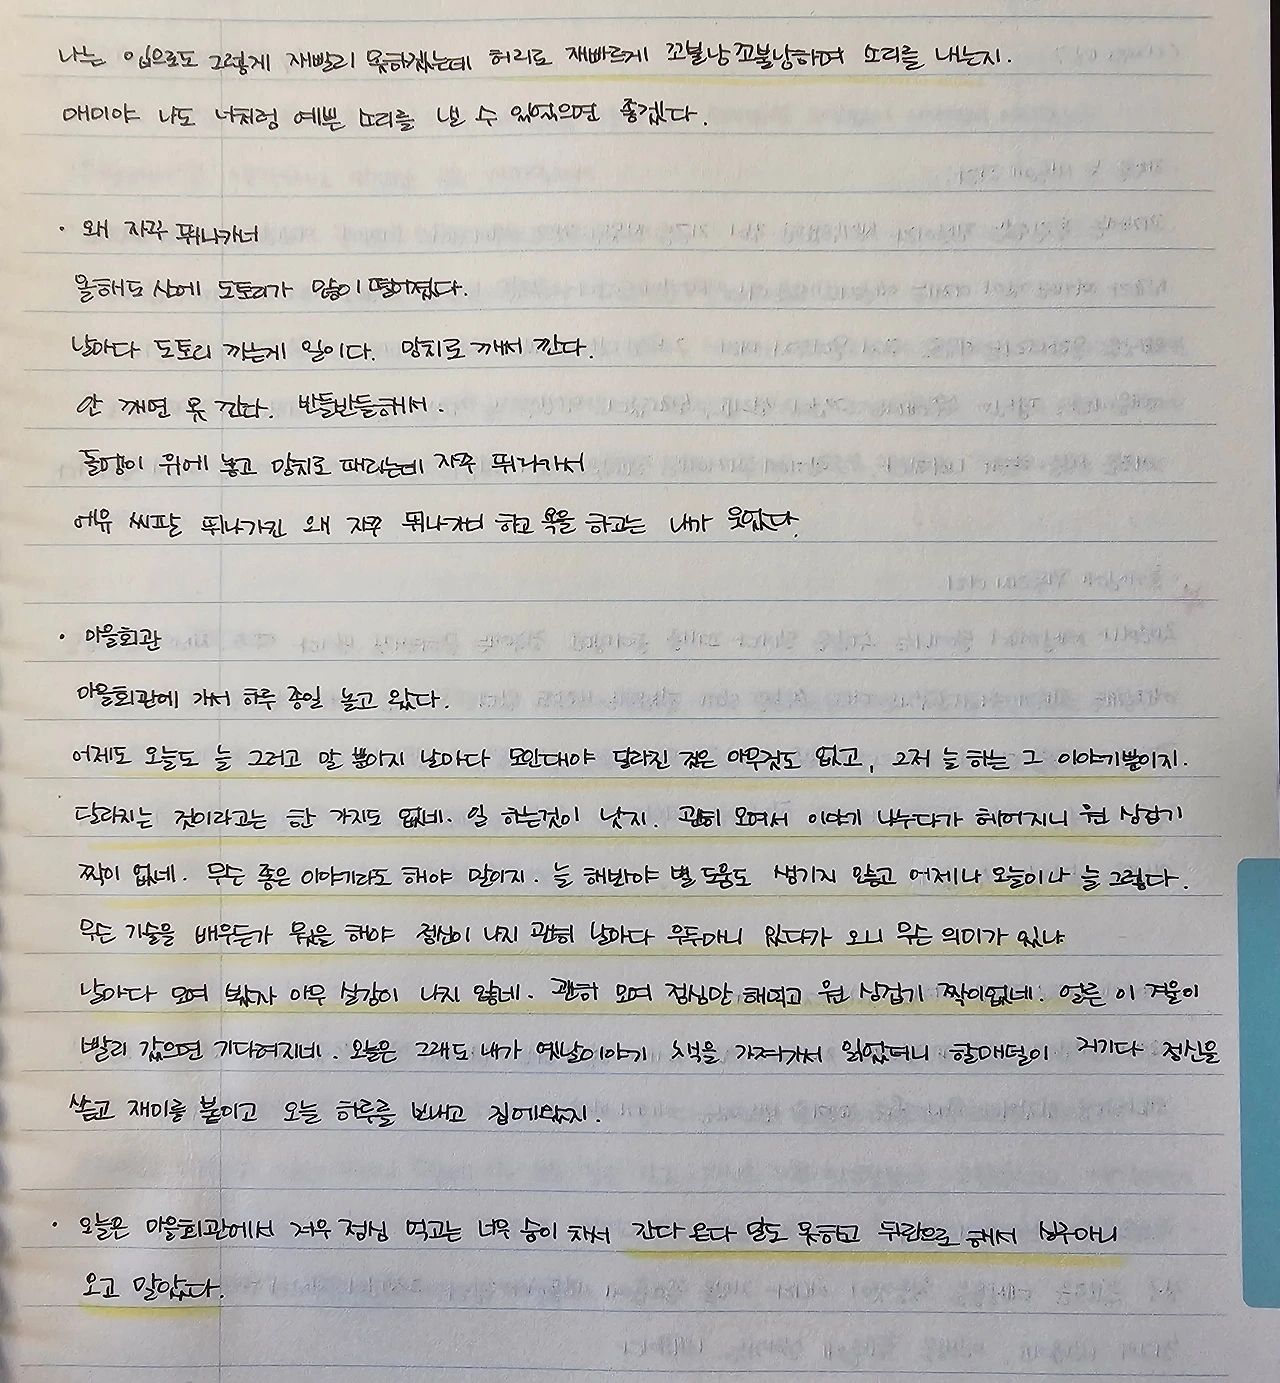 나는 입으로도 그렇게 재빨리 못하겠는데 허리로 재빠르게 꼬불낭꼬불낭하며 소리를 내는지.
매미야 나도 너처럼 예쁜 소리를 낼 수 있었으면 좋겠다.
· 왜 자꾸 뛰나가너
올해도 산에 도토리가 많이 떨어졌다.
날마다 도토리 까는게 일이다. 망치로 깨서 깐다.
안 깨면 못 깐다. 반들반들해서.
돌멩이 위에 놓고 망치로 때리는데 자꾸 뛰나가서
에유 씨팔 뛰나가긴 왜 자꾸 뛰나가너 하고 욕을 하고는 내가 웃었다.
· 마을회관
마을회관에 가서 하루 종일 놀고 왔다.
어제도 오늘도 늘 그러고 말 뿐이지 날마다 모인대야 달라진 것은 아무것도 없고, 그저 늘 하는 그 이야기뿐이지.
달라지는 것이라고는 한 가지도 없네. 일 하는것이 낫지. 괜히 모여서 이야기 나누다가 헤어지니 원 싱겁기
짝이 없네. 무슨 좋은 이야기라도 해야 말이지. 늘 해봐야 별 도움도 생기지 않고 어제나 오늘이나 늘 그렇다.
무슨 기술을 배우든가 뭐을 해야 정신이 나지 괜히 날마다 우두마니 있다가 오니 무슨 의미가 있나
날마다 모여 봤자 아무 실감이 나지 않네. 괜히 모여 점심만 해먹고 원 싱겁기 짝이없네. 얼른 이 겨울이
빨리 갔으면 기다려지네. 오늘은 그래도 내가 옛날이야기 책을 가져가서 읽었더니 할매덜이 거기다 정신을
쏟고 재미를 붙이고 오늘 하루를 보내고 집에왔지.
· 오늘은 마을회관에서 겨우 점심 먹고는 너무 숨이 차서 간다 온다 말도 못하고 뒤란으로 해서 살구마니
오고 말았다.